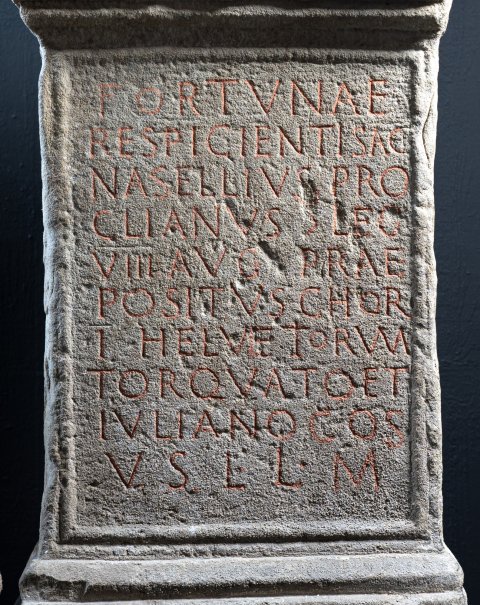 FORTVNAE
RESPICIENTI SAC
NASELLIVS PRO
CLIANVS 7 LEG
VIII AVG PRAE
POSITVS CHOR
T HELVETORVM
TORQVATO ET
IVLIANO COS
V S L L · M